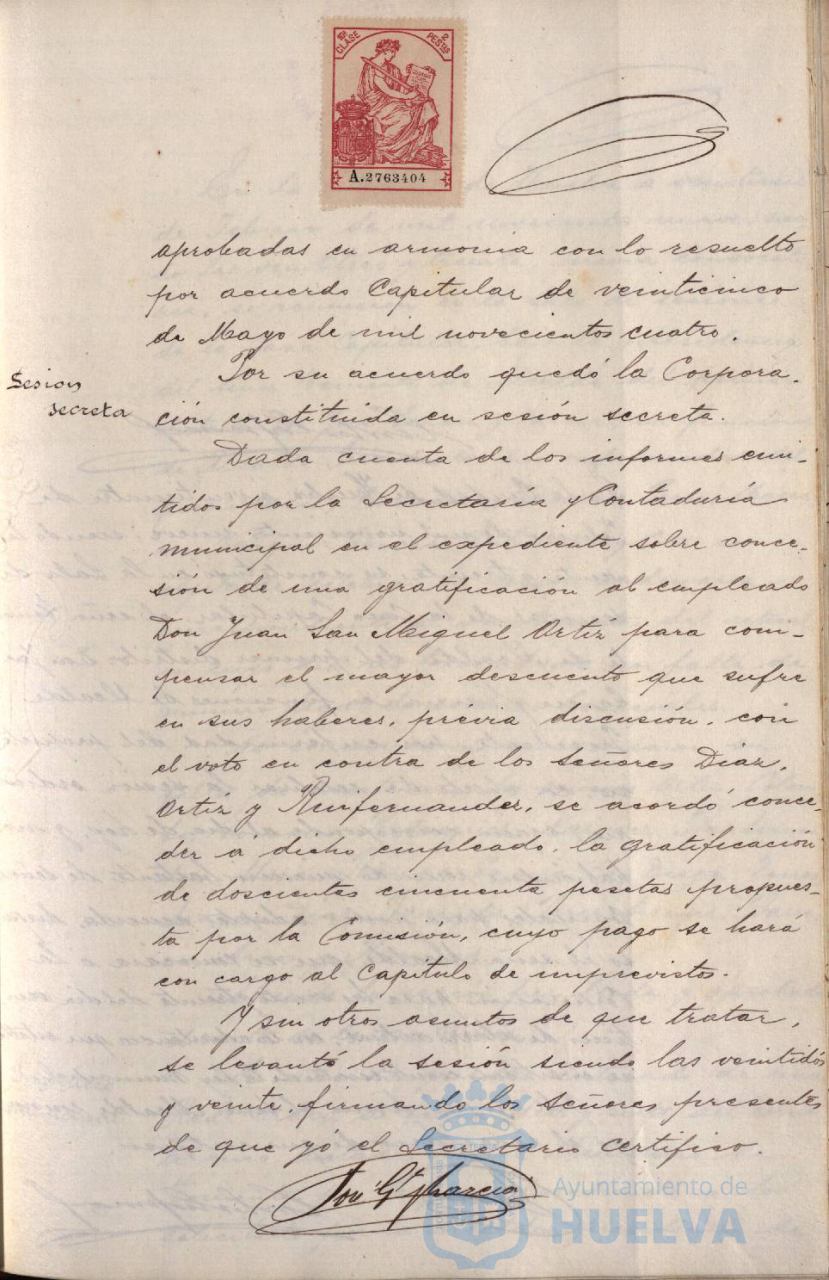 10ª CLASE
2 PESTAS
A.2763404
aprobadas en armonía con lo resuelto
por acuerdo Capitular de veinticinco
de Mayo de mil novecientos cuatro.
Por su acuerdo quedó la Corpora-
Sesion
secreta
ción constituida en sesión secreta.
Dada cuenta de los informes emi-
tidos por la Secretaría y Contaduría
municipal en el expediente sobre conce-
sión de una gratificación al empleado
Don Juan San Miguel Ortíz para com-
pensar el mayor descuento que sufre
en sus haberes, prévia discusión, con
el voto en contra de los Señores Diaz,
Ortíz y Ruifernandez, se acordó conce-
der á dicho empleado, la gratificación
de doscientas cincuenta pesetas propues-
ta por la Comisión, cuyo pago se hará
con cargo al Capitulo de imprevistos.
Y sin otros asuntos de que tratar,
se levantó la sesión siendo las veintidós
y veinte, firmando los Señores presentes
de que yó el Secretario certifico.
García
Ayuntamiento de
HUELVA